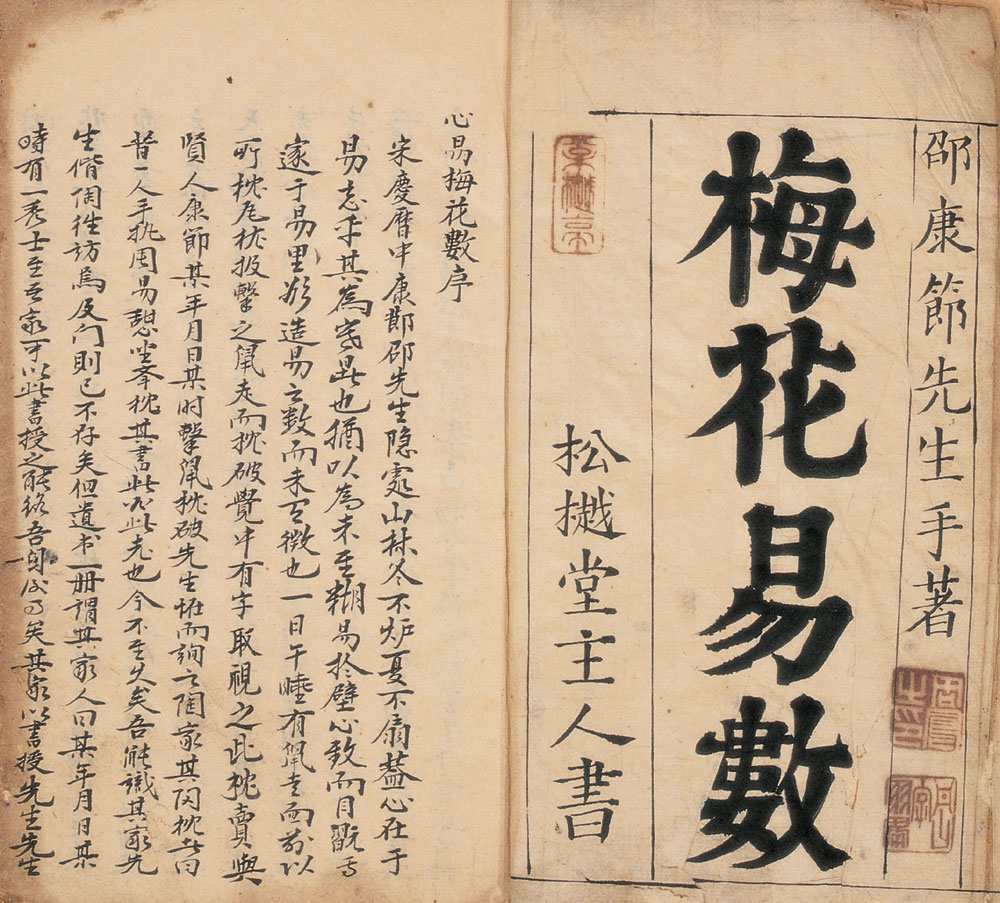 邵康節先生手著
梅花易數
松樾堂主人書
心易梅花數序
宋慶曆中康節邵先生隐處山林冬不炉夏不扇蓋心在于
易忘乎其為寒暑也猶以為未至糊易於壁心致而目翫焉
邃于易里欲造易之數而未有徵也一日午睡有鼠走而前以
所枕瓦枕投擊之鼠走而枕破覺中有字取視之此枕賣與
賢人康節某年月日某时擊鼠枕破先生怪而詢之陶家其陶枕者曰
昔一人手执周易憩坐举枕其書此必此老也今不至久矣吾能識其家先
生偕陶往訪焉及门則已不存矣但遺书一册謂其家人曰某年月日某
時有一秀士至吾家可以此書授之能終吾身后事矣其家以書授先生先生